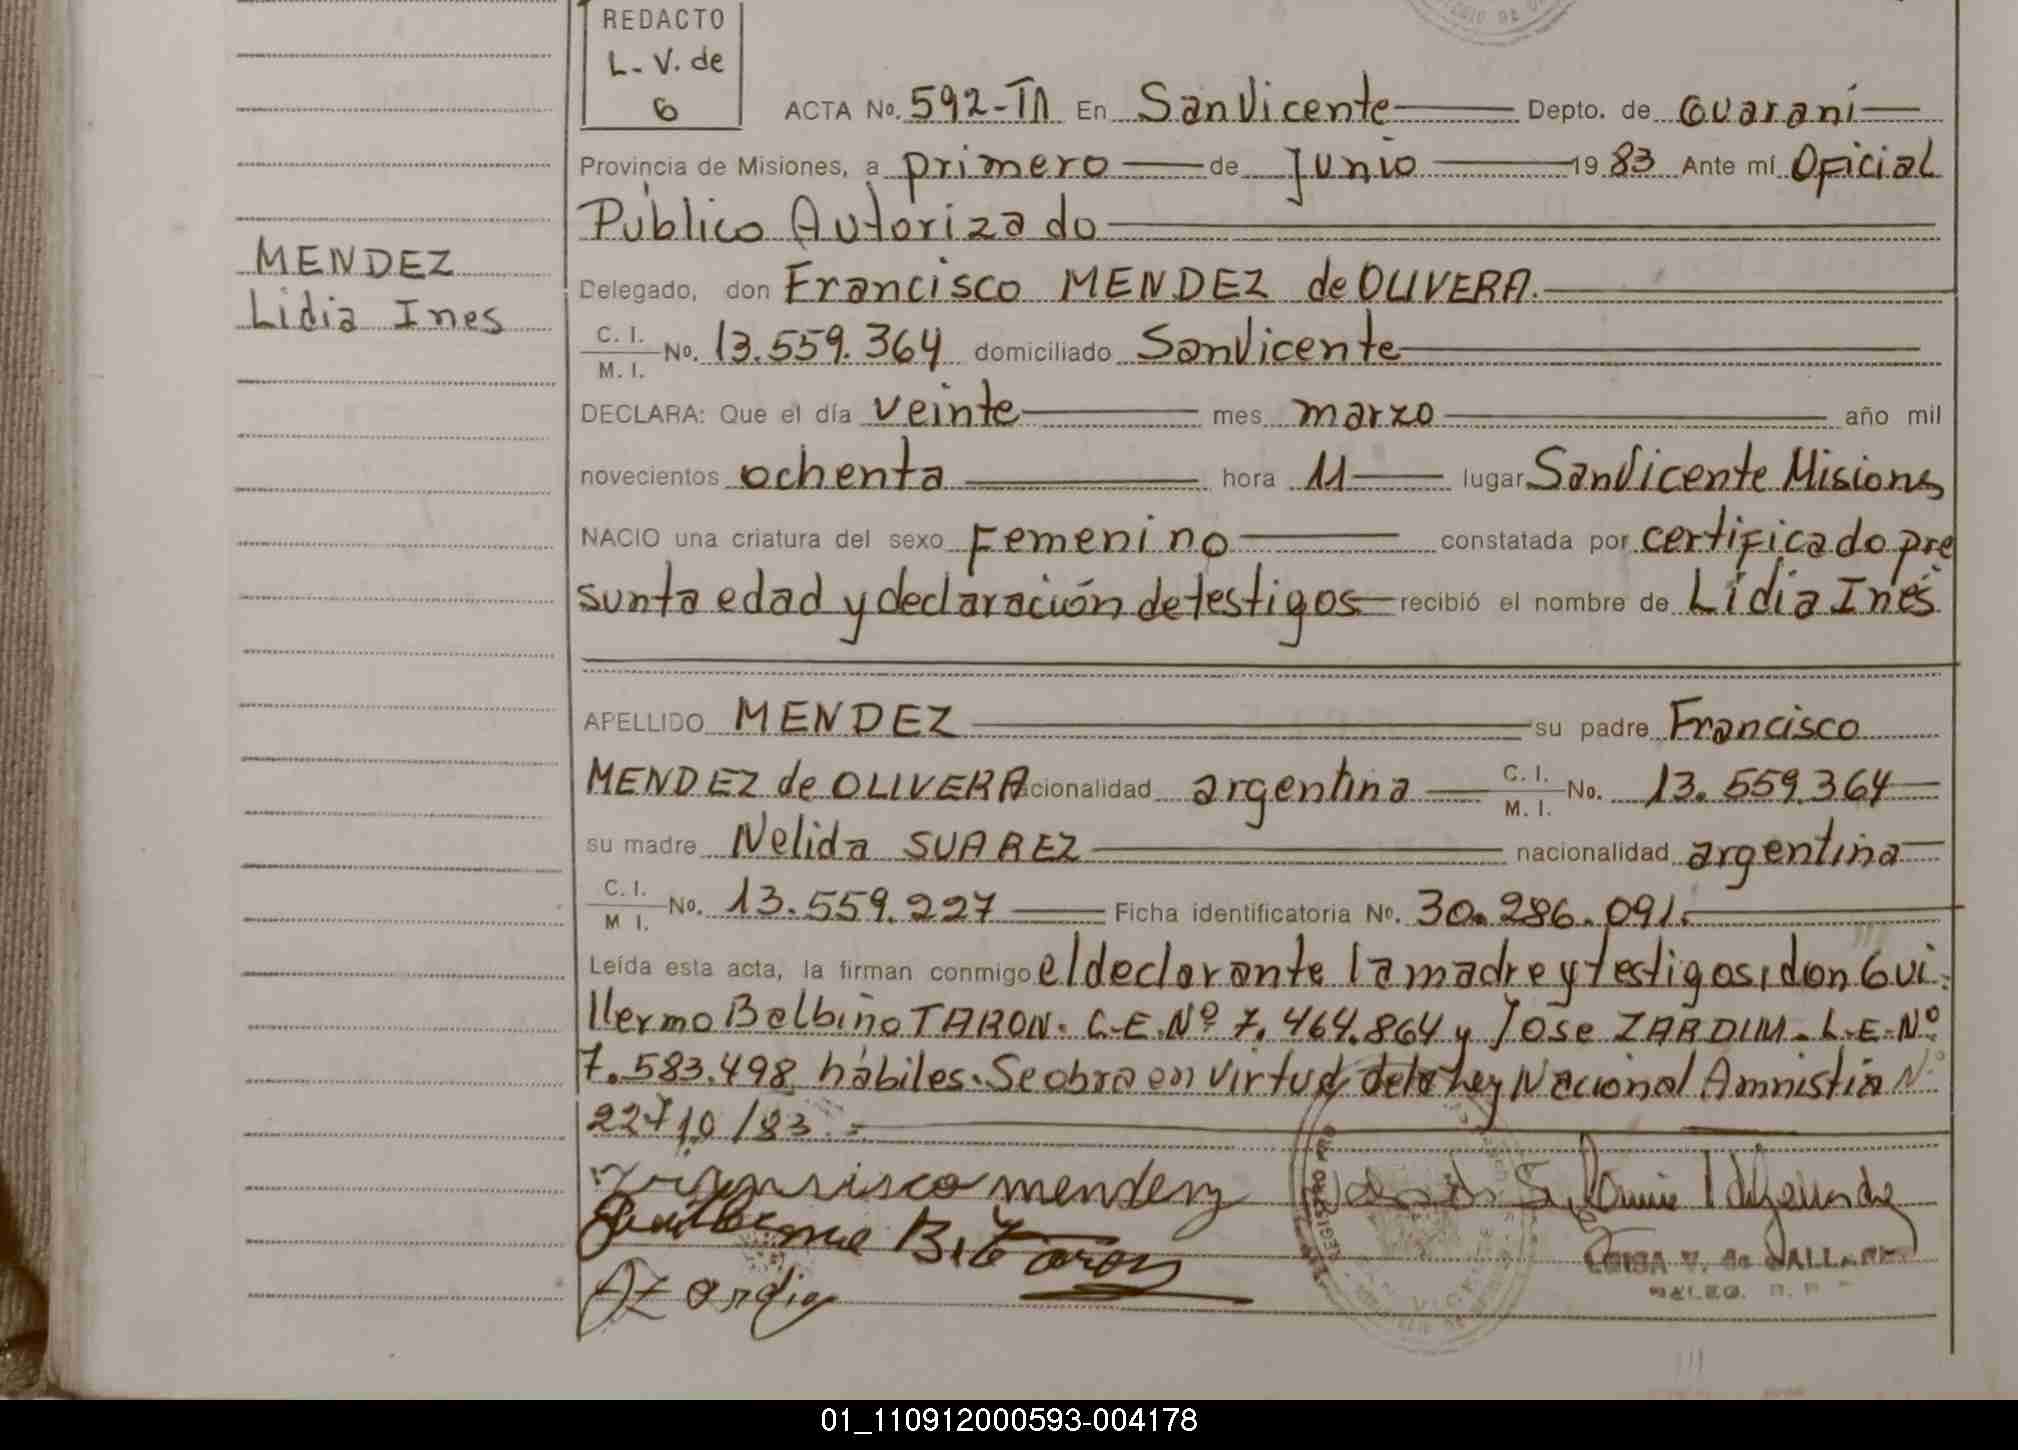 REDACTO
L. V. de
G
ACTA No. 592-TII En San Vicente Depto. de Guaraní
Provincia de Misiones, a primero de Junio 19 83 Ante mí Oficial
Público Autorizado
MENDEZ
Lidia Ines
Delegado, don Francisco MENDEZ de OLIVERA.
C. I.
M. I. No. 13.559.364 domiciliado San Vicente
DECLARA: Que el día veinte mes marzo año mil
novecientos ochenta hora 11 lugar San Vicente Misions
NACIO una criatura del sexo Femenino constatada por certificado pre
sunta edad y declaración de testigos recibió el nombre de Lidia Inés
APELLIDO MENDEZ su padre Francisco
MENDEZ de OLIVERA acionalidad argentina C. I.
M. I. No. 13.559.364
su madre Nelida SUAREZ nacionalidad argentina
C. I.
M I. No. 13.559.227 Ficha identificatoria No. 30.286.091.
Leída esta acta, la firman conmigo el declarante la madre y testigos, don Gui-
llermo Balbino TARON. L.E. Nº 7.464.864 y Jose ZARDIM. L.E. Nº
7.583.498 hábiles. Se obra en virtud de la Ley Nacional Amnistia Nº
22710/83.=
Francisco mendez
Guillerme B. Taron
Zardin
LUISA V. de
01_110912000593-004178